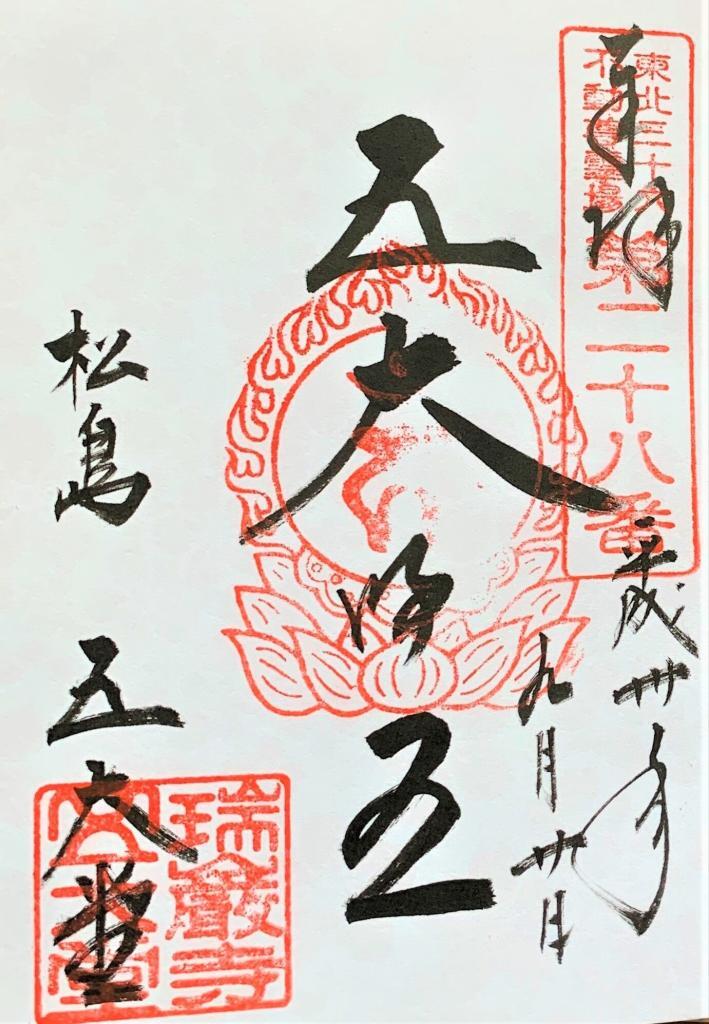 奉拝
東北三十六
不動尊霊場
第二十八番
平成卅年
九月卅日
五大明王
松島 五大堂
瑞巌寺
五大堂